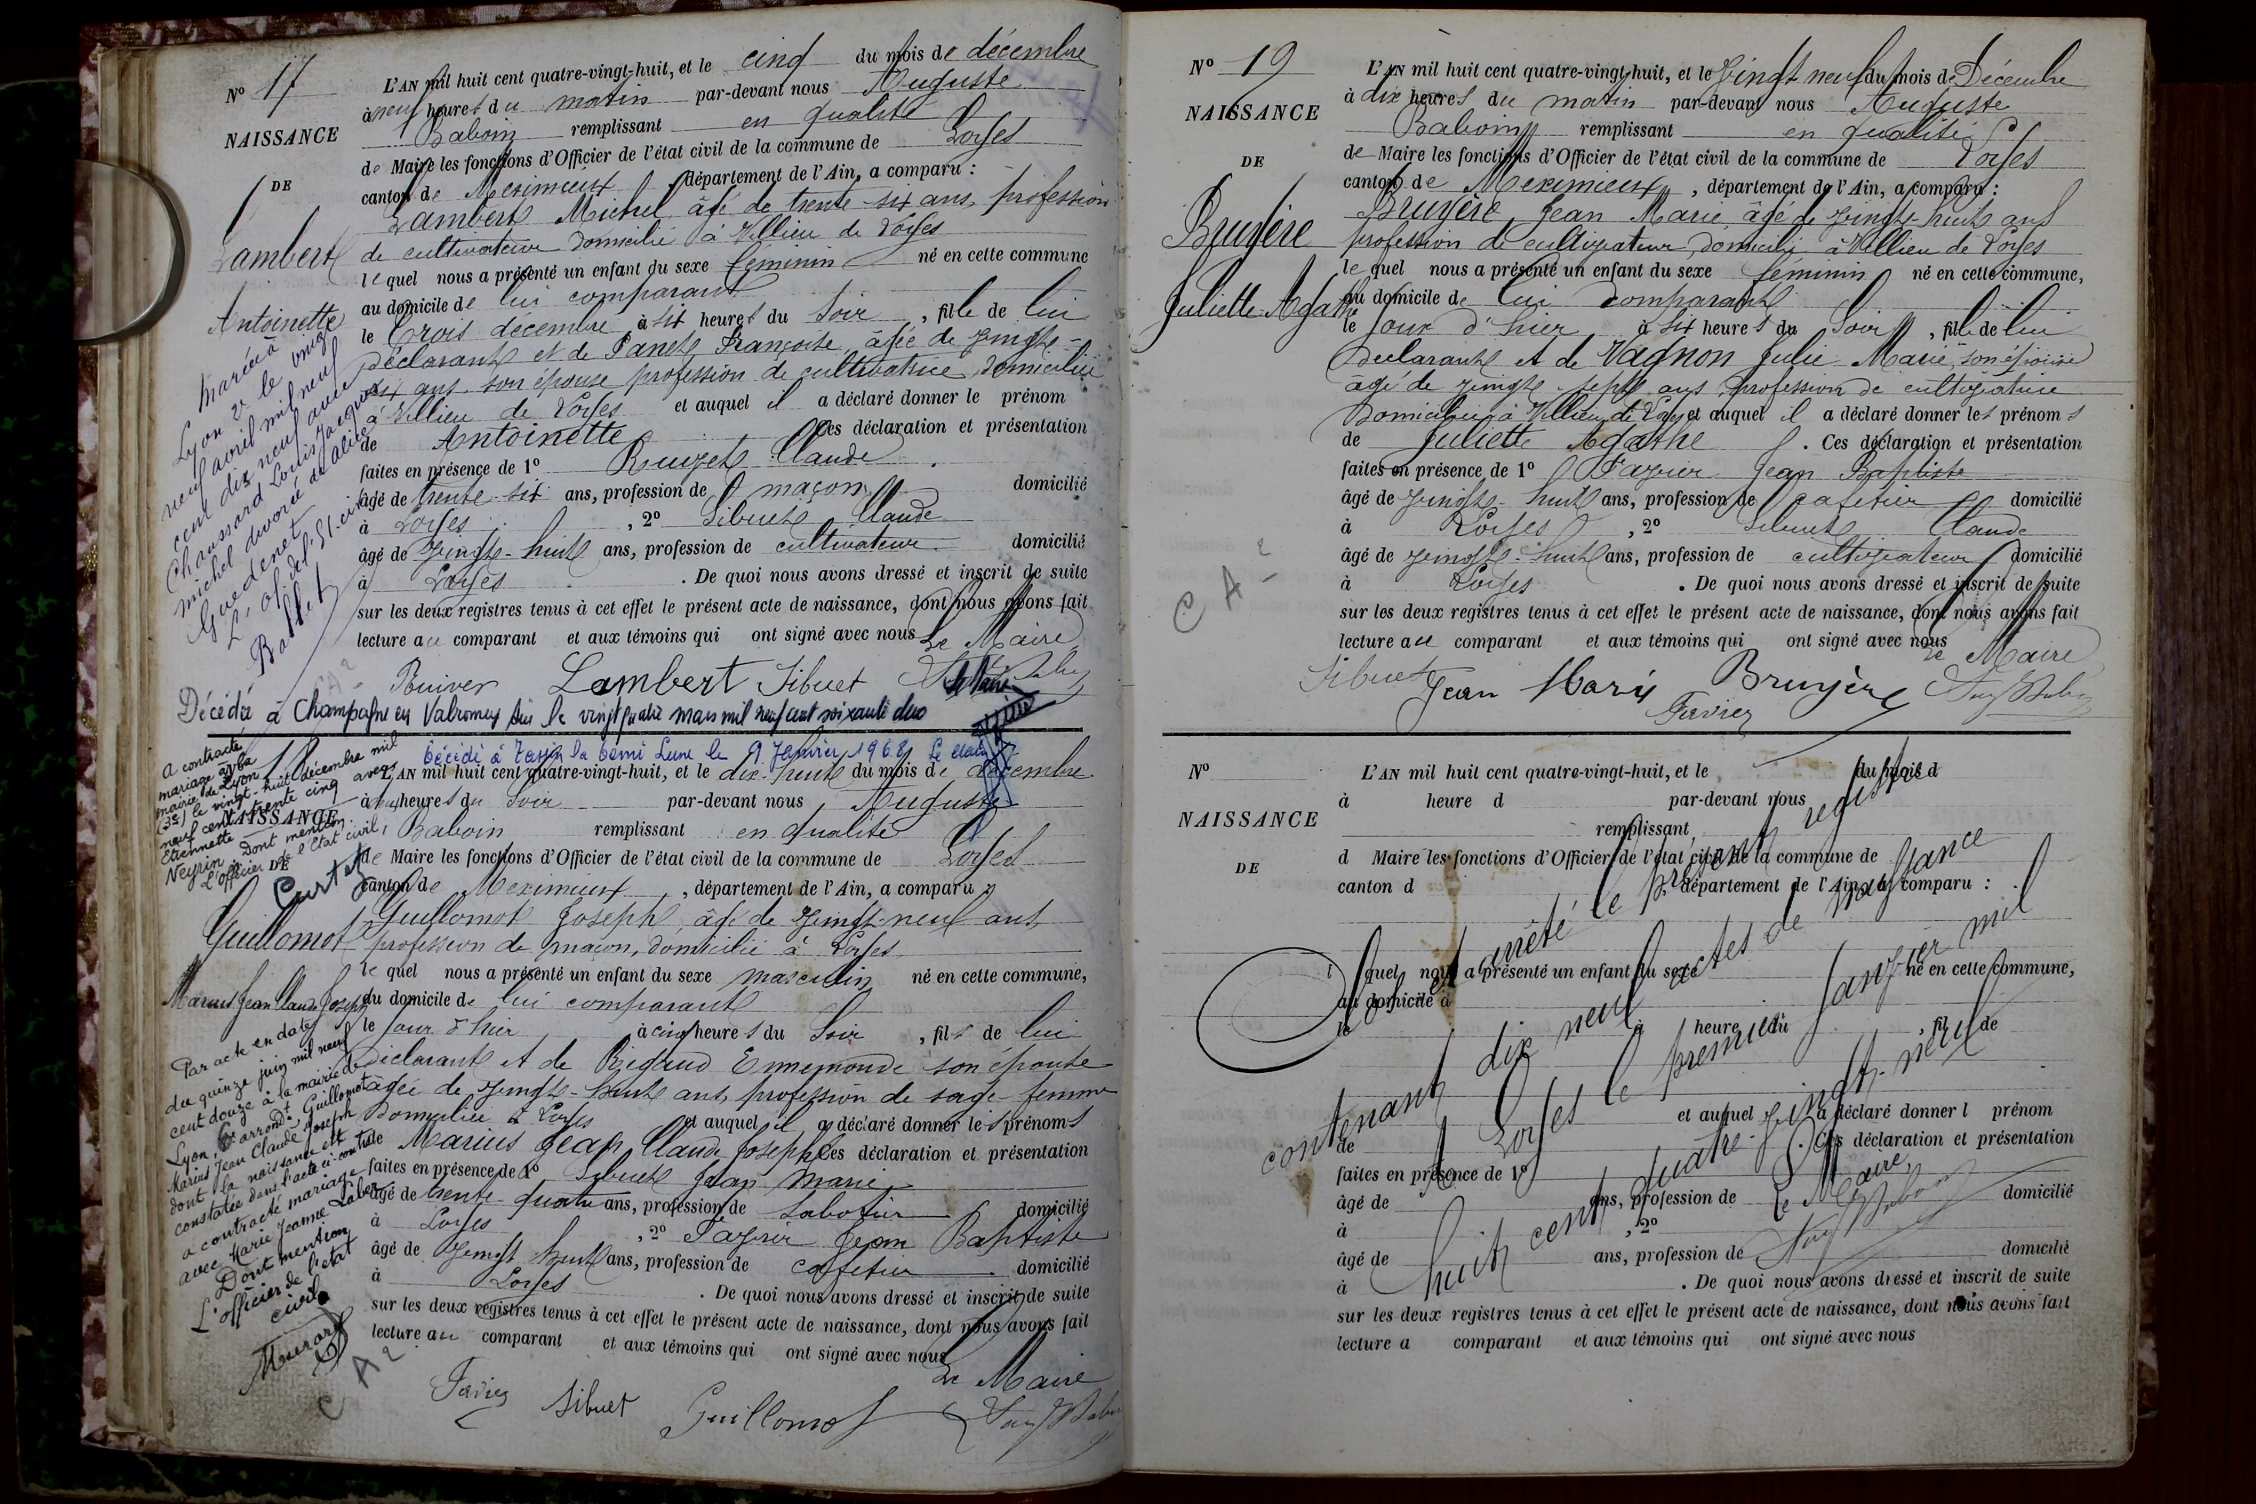 N° 17
L'AN mil huit cent quatre-vingt-huit, et le cinq du mois de décembre
à neuf heures du matin par-devant nous Auguste
NAISSANCE
Baboin remplissant en qualité
de Maire les fonctions d'Officier de l'état civil de la commune de Loyes
DE
canton de Meximieux, département de l'Ain, a comparu :
Lambert Michel, âgé de trente-six ans, profession
de cultivateur domicilié à Villieu de Loyes
Lambert
Antoinette
lequel nous a présenté un enfant du sexe féminin né en cette commune
au domicile de lui comparant
le trois décembre à six heures du soir, fille de lui
déclarant et de Panet Françoise, âgée de vingt-
six ans son épouse profession de cultivatrice domiciliée
à Villieu de Loyes et auquel il a déclaré donner le prénom
de Antoinette Ces déclaration et présentation
faites en présence de 1° Claude
âgé de trente-six ans, profession de maçon domicilié
à Loyes, 2° Sibuet Claude
âgé de vingt-huit ans, profession de cultivateur domicilié
à Loyes. De quoi nous avons dressé et inscrit de suite
sur les deux registres tenus à cet effet le présent acte de naissance, dont nous avons fait
lecture au comparant et aux témoins qui ont signé avec nous
Le Maire
Lambert Sibuet
Mariée à
Lyon 2e le vingt
neuf avril mil neuf
cent dix neuf avec
Chaussard Louis Jacques
michel divorcé de alice
Guedenet
L'of. de l'Et. civil
Décédée à Champagne en Valromey Ain le vingt quatre mars mil neuf cent soixante deux
18
A contracté
mariage à la
mairie de Lyon
(3e) le vingt-huit décembre mil
neuf cent trente cinq avec
Etiennette
Neyrin. Dont mention.
L'officier de l'Etat civil,
Curtet
Décédé à Tassin la Demi Lune le 9 Janvier 1968
L'AN mil huit cent quatre-vingt-huit, et le dix-huit du mois de décembre
à heures du soir par-devant nous Auguste
NAISSANCE
Baboin remplissant en qualité
DE
de Maire les fonctions d'Officier de l'état civil de la commune de Loyes
canton de Meximieux, département de l'Ain, a comparu
Guillomot Joseph, âgé de vingt-neuf ans
profession de maçon, domicilié à Loyes
Guillomot
Marius Jean Claude Joseph
lequel nous a présenté un enfant du sexe masculin né en cette commune,
au domicile de lui comparant
le jour d'hier à cinq heures du soir, fils de lui
Déclarant et de Rigaud Ennemonde son épouse
âgée de vingt-huit ans, profession de sage-femme
Domiciliée à Loyes et auquel il a déclaré donner les prénoms
de Marius Jean Claude Joseph Ces déclaration et présentation
faites en présence de 1° Sibuet Jean Marie
âgé de trente quatre ans, profession de sabotier domicilié
à Loyes, 2° Favier Jean Baptiste
âgé de vingt huit ans, profession de cafetier domicilié
à Loyes. De quoi nous avons dressé et inscrit de suite
sur les deux registres tenus à cet effet le présent acte de naissance, dont nous avons fait
lecture au comparant et aux témoins qui ont signé avec nous
Le Maire
Favier Sibuet Guillomot
Par acte en date
du quinze juin mil neuf
cent douze à la mairie de
Lyon, arrondt Guillomot
Marius Jean Claude Joseph
dont la naissance est
constatée dans l'acte ci-contre
a contracté mariage
avec Marie Jeanne
Dont mention
L'officier de l'état
civil
CA2
N° 19
L'AN mil huit cent quatre-vingt-huit, et le vingt neuf du mois de Décembre
à dix heures du matin par-devant nous Auguste
NAISSANCE
Baboin remplissant en qualité
DE
de Maire les fonctions d'Officier de l'état civil de la commune de Loyes
canton de Meximieux, département de l'Ain, a comparu :
Bruyère Jean Marie âgé de vingt-huit ans
Bruyère
Juliette Agathe
profession de cultivateur, domicilié à Villieu de Loyes
lequel nous a présenté un enfant du sexe féminin né en cette commune,
au domicile de lui comparant
le jour d'hier à six heures du soir, fille de lui
Declarant et de Vagnon Julie Marie son épouse
âgé de vingt-sept ans profession de cultivatrice
Domiciliée à Villieu de Loyes et auquel il a déclaré donner les prénoms
de Juliette Agathe. Ces déclaration et présentation
faites en présence de 1° Favier Jean Baptiste
âgé de vingt-huit ans, profession de cafetier domicilié
à Loyes, 2° Sibuet Claude
âgé de vingt-huit ans, profession de cultivateur domicilié
à Loyes. De quoi nous avons dressé et inscrit de suite
sur les deux registres tenus à cet effet le présent acte de naissance, dont nous avons fait
lecture au comparant et aux témoins qui ont signé avec nous
Le Maire
Sibuet Jean Marie Bruyère
Favier
CA2
N°
L'AN mil huit cent quatre-vingt-huit, et le du mois d
à heure d par-devant nous
NAISSANCE
remplissant
DE
d Maire les fonctions d'Officier de l'état civil de la commune de
canton d, département de l'Ain, a comparu :
l quel nous a présenté un enfant du sexe né en cette commune,
au domicile d
le à heure du, fil de
et auquel a déclaré donner l prénom
de. Ces déclaration et présentation
faites en présence de 1°
âgé de ans, profession de domicilié
à, 2°
âgé de ans, profession de domicilié
à. De quoi nous avons dressé et inscrit de suite
sur les deux registres tenus à cet effet le présent acte de naissance, dont nous avons fait
lecture a comparant et aux témoins qui ont signé avec nous
Clos et arrêté le présent registre
contenant dix neuf actes de naissance
A Loyes le premier Janvier mil
huit cent quatre-vingt-neuf
Le Maire